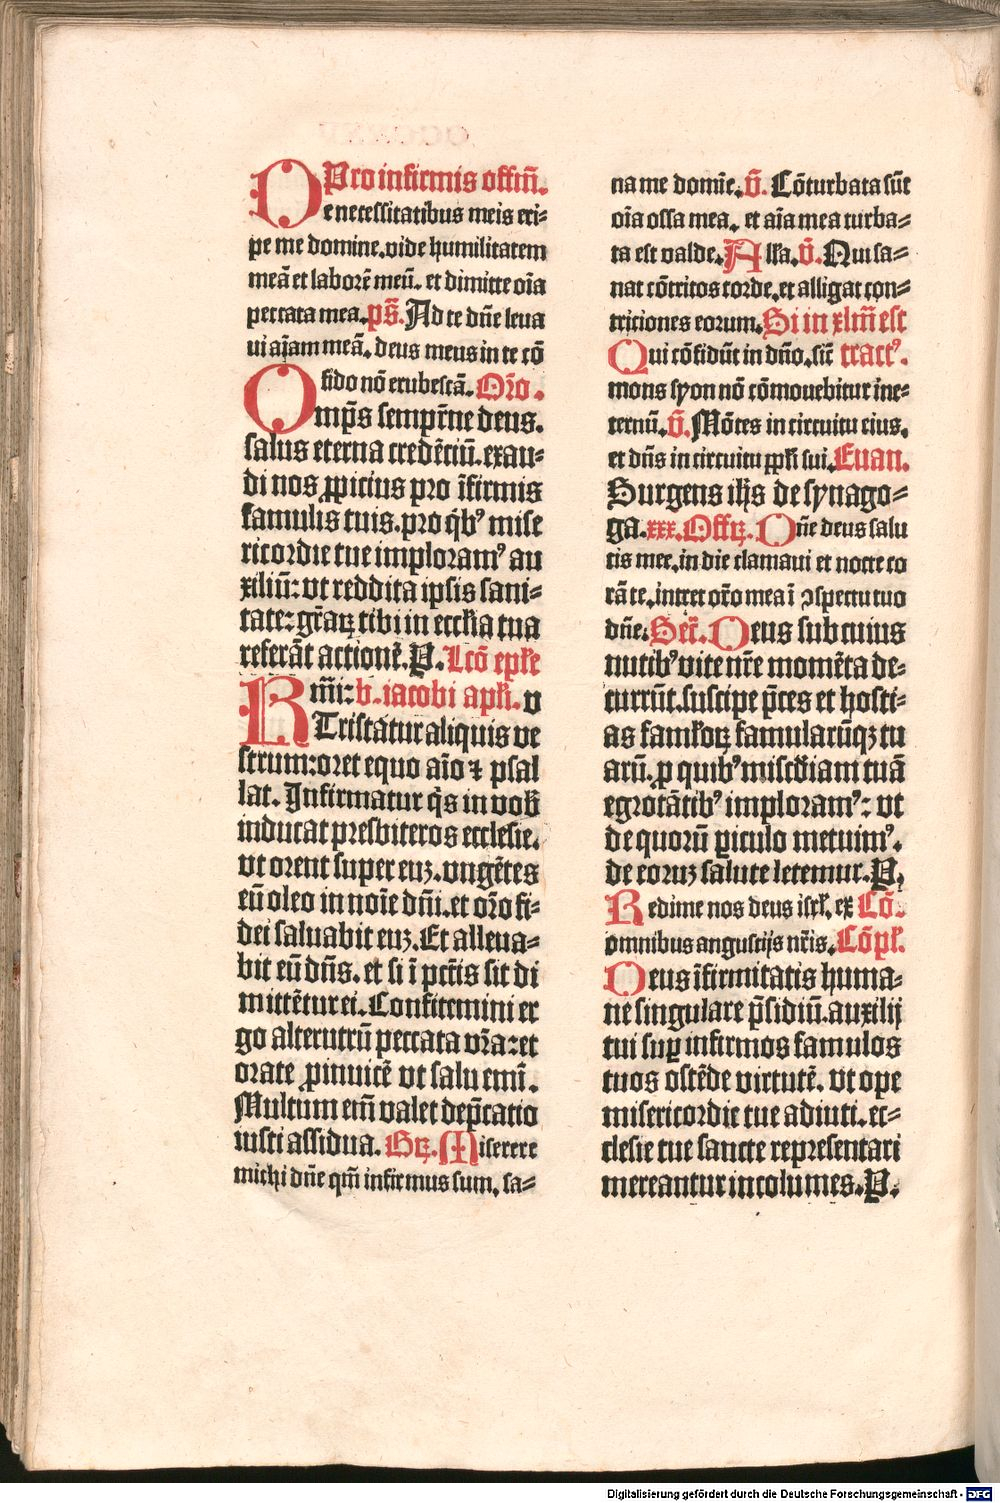 Pro infirmis offm̄.
De necessitatibus meis eri-
pe me domine. vide humilitatem
meā et laborē meū. et dimitte oīa
peccata mea. ps̄. Ad te dn̄e leua
ui aīam meā. deus meus in te cō
fido nō erubescā. Or̄o.
Omp̄s semp̄rne deus.
salus eterna credēciū. exau-
di nos ꝓpicius pro īfirmis
famulis tuis. pro qͥbꝰ mise
ricordie tue imploramꝰ au
xiliū: vt reddita ipsis sani-
tate: gr̄aꝝ tibi in eccl̄ia tua
referāt actionē. P. Lc̄o epl̄e
Rm̄i: b. iacobi apl̄i. v
Tristatur aliquis ve
strum: oret equo aīo ⁊ psal
lat. Infirmatur qͥs in vob̄
inducat presbiteros ecclesie.
vt orent super euꝫ. vngētes
eū oleo in noīe dn̄i. et or̄o fi-
dei saluabit euꝫ. Et alleua-
bit eū dn̄s. et si ī pctīs sit di
mittētur ei. Confitemini er
go alterutrū peccata vr̄a: et
orate ꝓinuicē vt saluemī.
Multum em̄ valet dep̄catio
iusti assidua. Gꝝ. Miserere
michi dn̄e qm̄ infirmus sum. sa-
na me domīe. v̄. Cōturbata sūt
oīa ossa mea. et aīa mea turba-
ta est valde. All̄a. v̄. Qui sa-
nat cōtritos corde. et alligat con-
triciones eorum. Si in xlm̄ est
Qui cōfidūt in dn̄o. sic̄ tractꝰ.
mons syon nō cōmouebitur ine-
ternū. v̄. Mōtes in circuitu eius.
et dn̄s in circuitu ppl̄i sui. Euan.
Surgens ih̄s de synago-
ga. xxx. Offꝝ. Dn̄e deus salu
tis mee. in die clamaui et nocte co
rā te. intret or̄o mea ī ꝯspectu tuo
dn̄e. Secr̄. Deus sub cuius
nutibꝰ vite nr̄e momēta de-
currūt. suscipe p̄ces et hosti-
as faml̄oꝝ famularūqꝫ tu
arū. ꝓ quibꝰ misc̄diam tuā
egrotātibꝰ imploramꝰ: vt
de quorū ꝑiculo metuimꝰ.
de eoruꝫ salute letemur. P.
Redime nos deus isrl̄. ex Cō.
omnibus angustijs nr̄is. Cōpl̄.
Deus īfirmitatis huma-
ne singulare p̄sidiū. auxilij
tui suꝑ infirmos famulos
tuos ostēde virtutē. vt ope
misericordie tue adiuti. ec-
clesie tue sancte representari
mereantur incolumes. P.
Digitalisierung gefördert durch die Deutsche Forschungsgemeinschaft - DFG